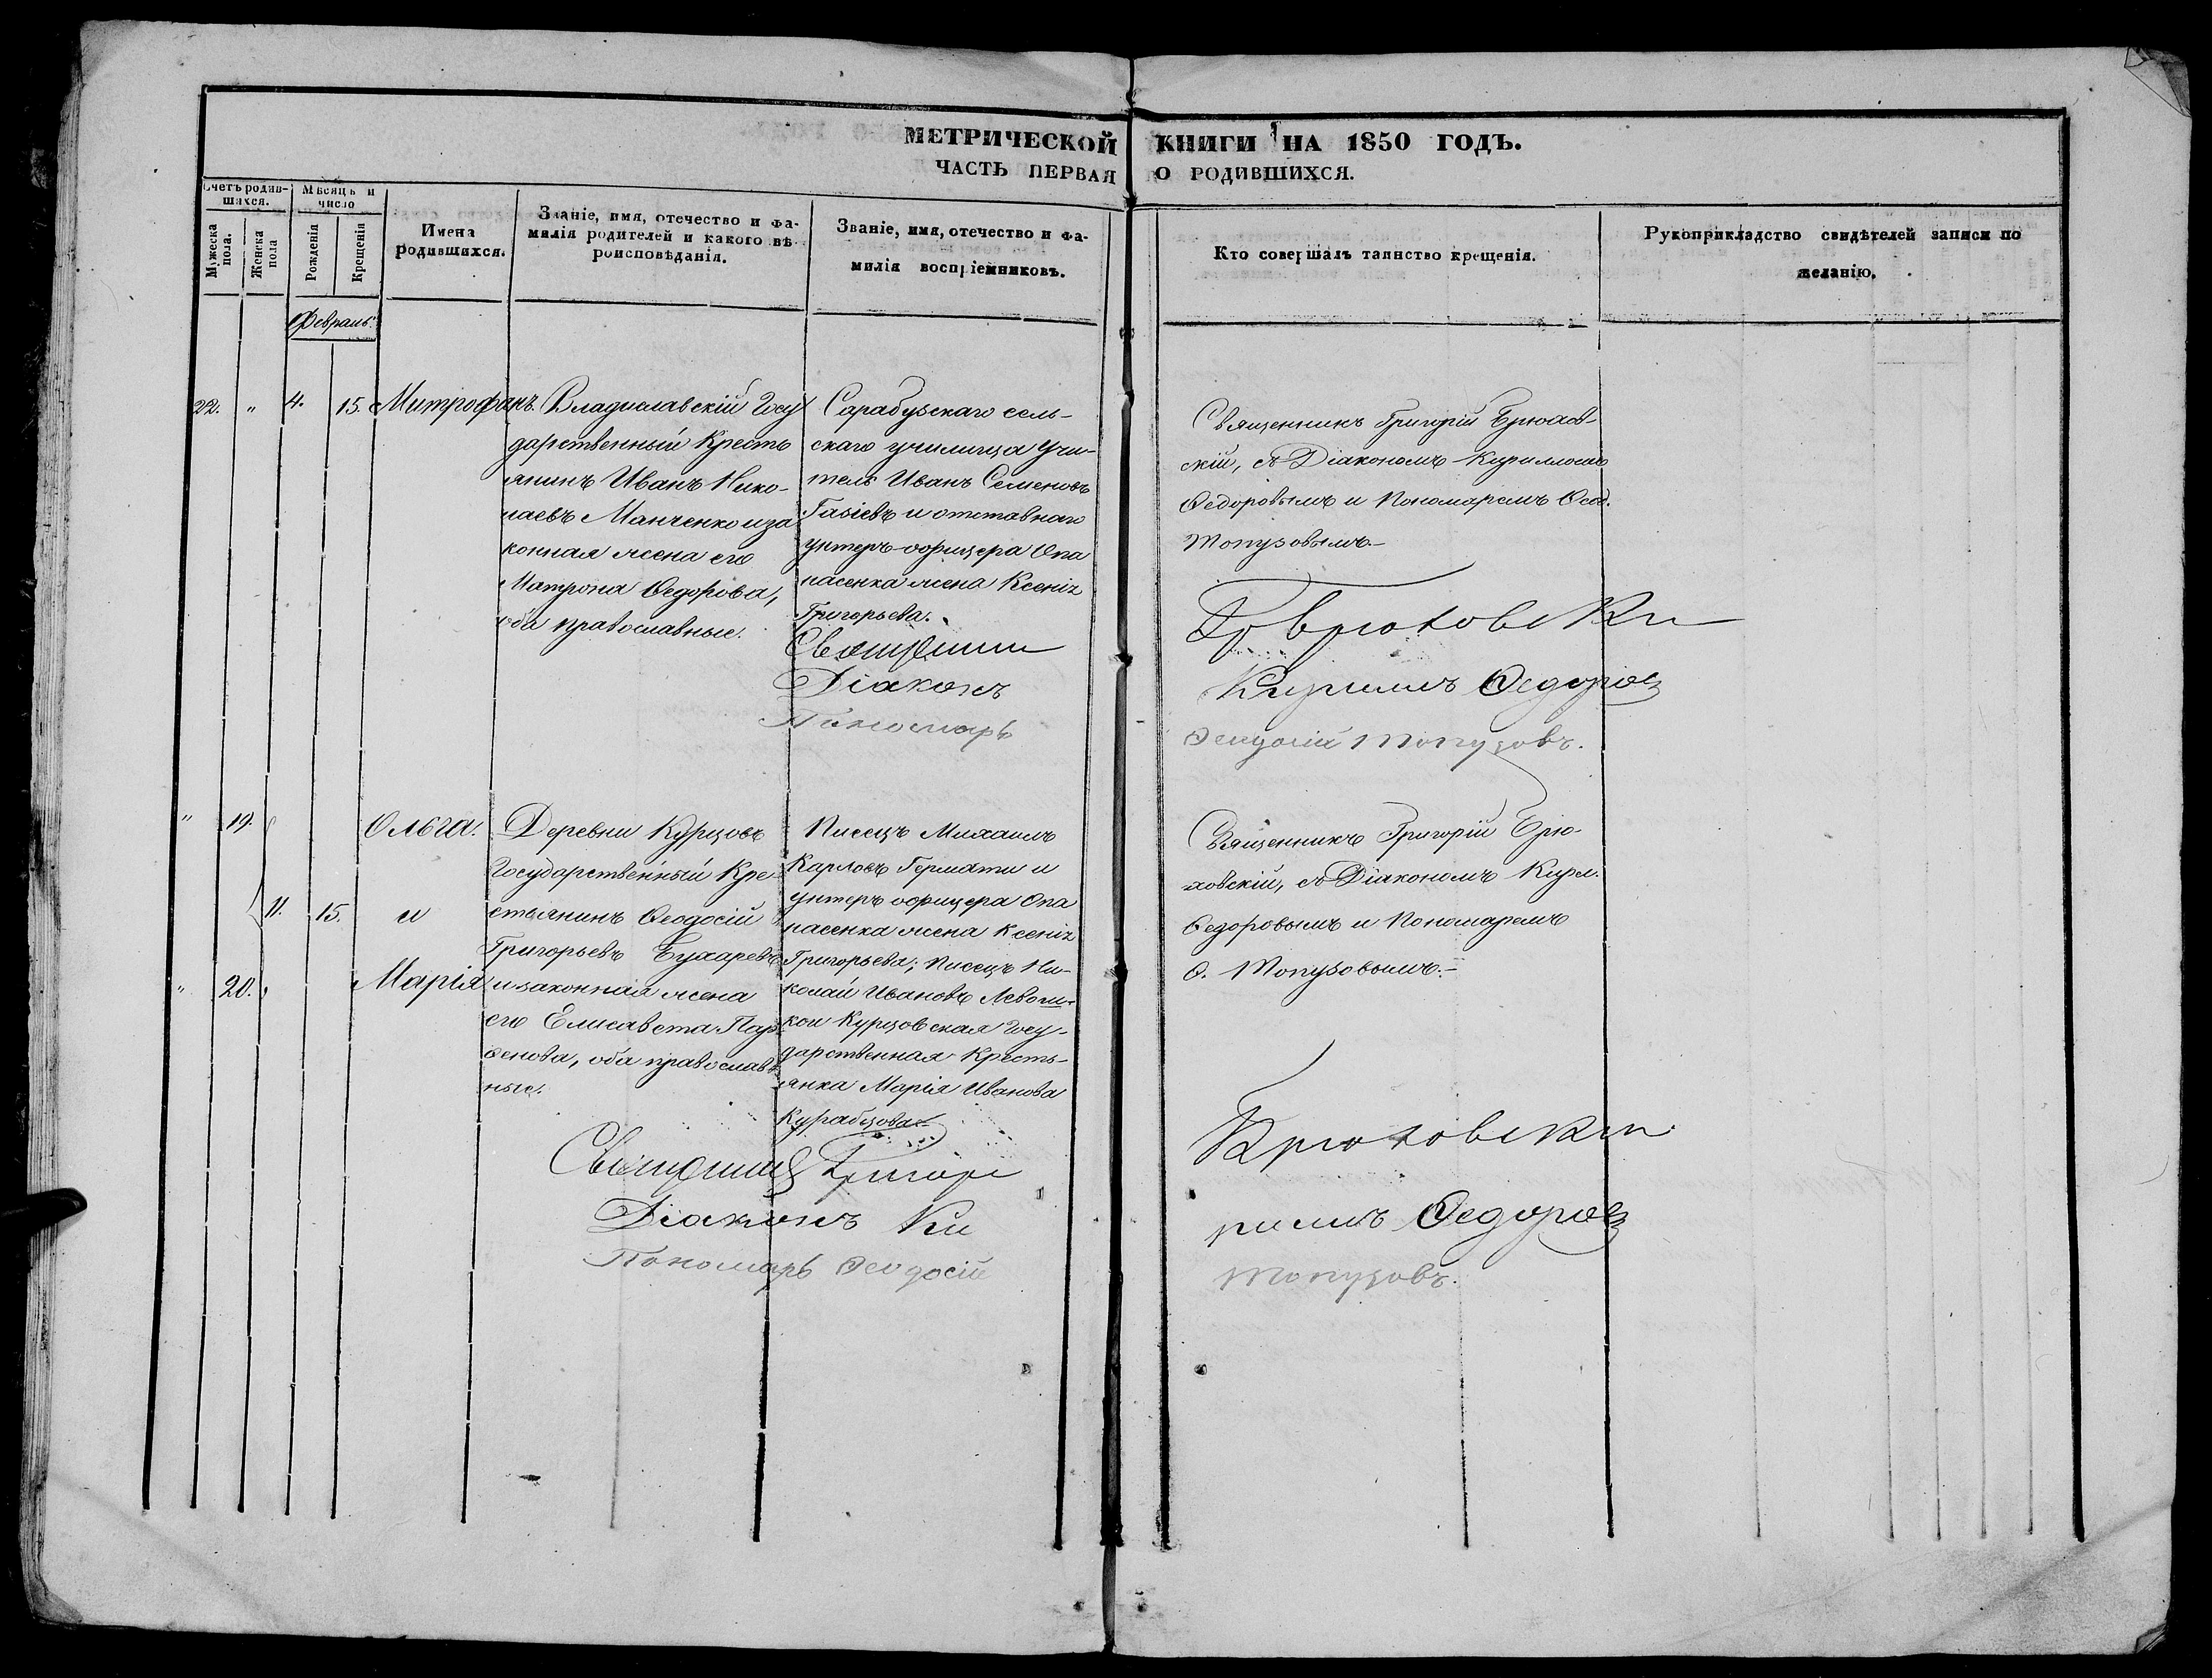 МЕТРИЧЕСКОЙ КНИГИ НА 1850 ГОДЪ.
ЧАСТЬ ПЕРВАЯ О РОДИВШИХСЯ.
Счетъ родив-
шихся.
Мужеска
пола.
Женска
пола
Мѣсяцъ и
число
Рожденія
Крещенія
Имена
родившихся.
Званіе, имя, отечество и фа-
милія родителей и какого вѣ-
роисповѣданія.
Званіе, имя, отечество и фа-
милія воспріемниковъ.
Кто совершалъ таинство крещенія.
Рукоприкладство свидѣтелей записи по
желанію.
Февраль.
22. " 4. 15. Митрофанъ.
Владиславскій Госу
дарственный Кресть
янинъ Иванъ Нико-
лаевъ Манченко и за
конная жена его
Матрона Ѳедорова,
оба православные.
Сарабузскаго сель-
скаго училища Учи-
тель Иванъ Семеновъ
Газіевъ и отставнаго
унтеръ-офицера Опа
насенка жена Ксенія
Григорьева.
Священникъ Григорій Брюхов-
скій, съ Діакономъ Кирилломъ
Ѳедоровымъ и Пономаремъ Ѳеод.
Топузовымъ.-
Священникъ Гр Брюховскій
Діаконъ Кириллъ Ѳедоровъ
Пономарь Ѳеодосій Топузовъ.
" 19. Ольга.
11. 15. и
" 20. Марія
Деревни Курцовъ
Государственный Кре-
стьянинъ Ѳеодосій
Григорьевъ Бухаревъ
и законная жена
его Елисавета Пар-
ѳенова, оба православ-
ные.
Писецъ Михаилъ
Карловъ Гермати и
унтеръ офицера Опа
насенка жена Ксенія
Григорьева; Писецъ Ни-
колай Ивановъ
и Курцовская Госу-
дарственная Кресть-
янка Марія Иванова
Курабцова.-
Священникъ Григорій Брю-
ховскій, съ Діакономъ Кирил.
Ѳедоровымъ и Пономаремъ
Ѳ. Топузовымъ.-
Священникъ Григорій Брюховскій
Діаконъ Кириллъ Ѳедоровъ
Пономарь Ѳеодосій Топузовъ.